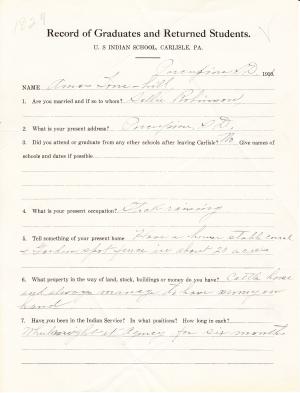 1829
Record of Graduates and Returned Students.
U. S INDIAN SCHOOL, CARLISLE, PA.
Porcupine S.D. 191
NAME Amos Lone-hill
1. Are you married and if so to whom? Robinson
2. What is your present address? Porcupine, S.D.
3. Did you attend or graduate from any other schools after leaving Carlisle? No Give names of
schools and dates if possible
4. What is your present occupation? Stock raising
5. Tell something of your present home Have a house stable corral
& Garden spot fence in about 20 acres
6. What property in the way of land, stock, buildings or money do you have? Cattle horse
and always manage to have money on
hand
7. Have you been in the Indian Service? In what positions? How long in each?
Wheelwright at Agency for six months